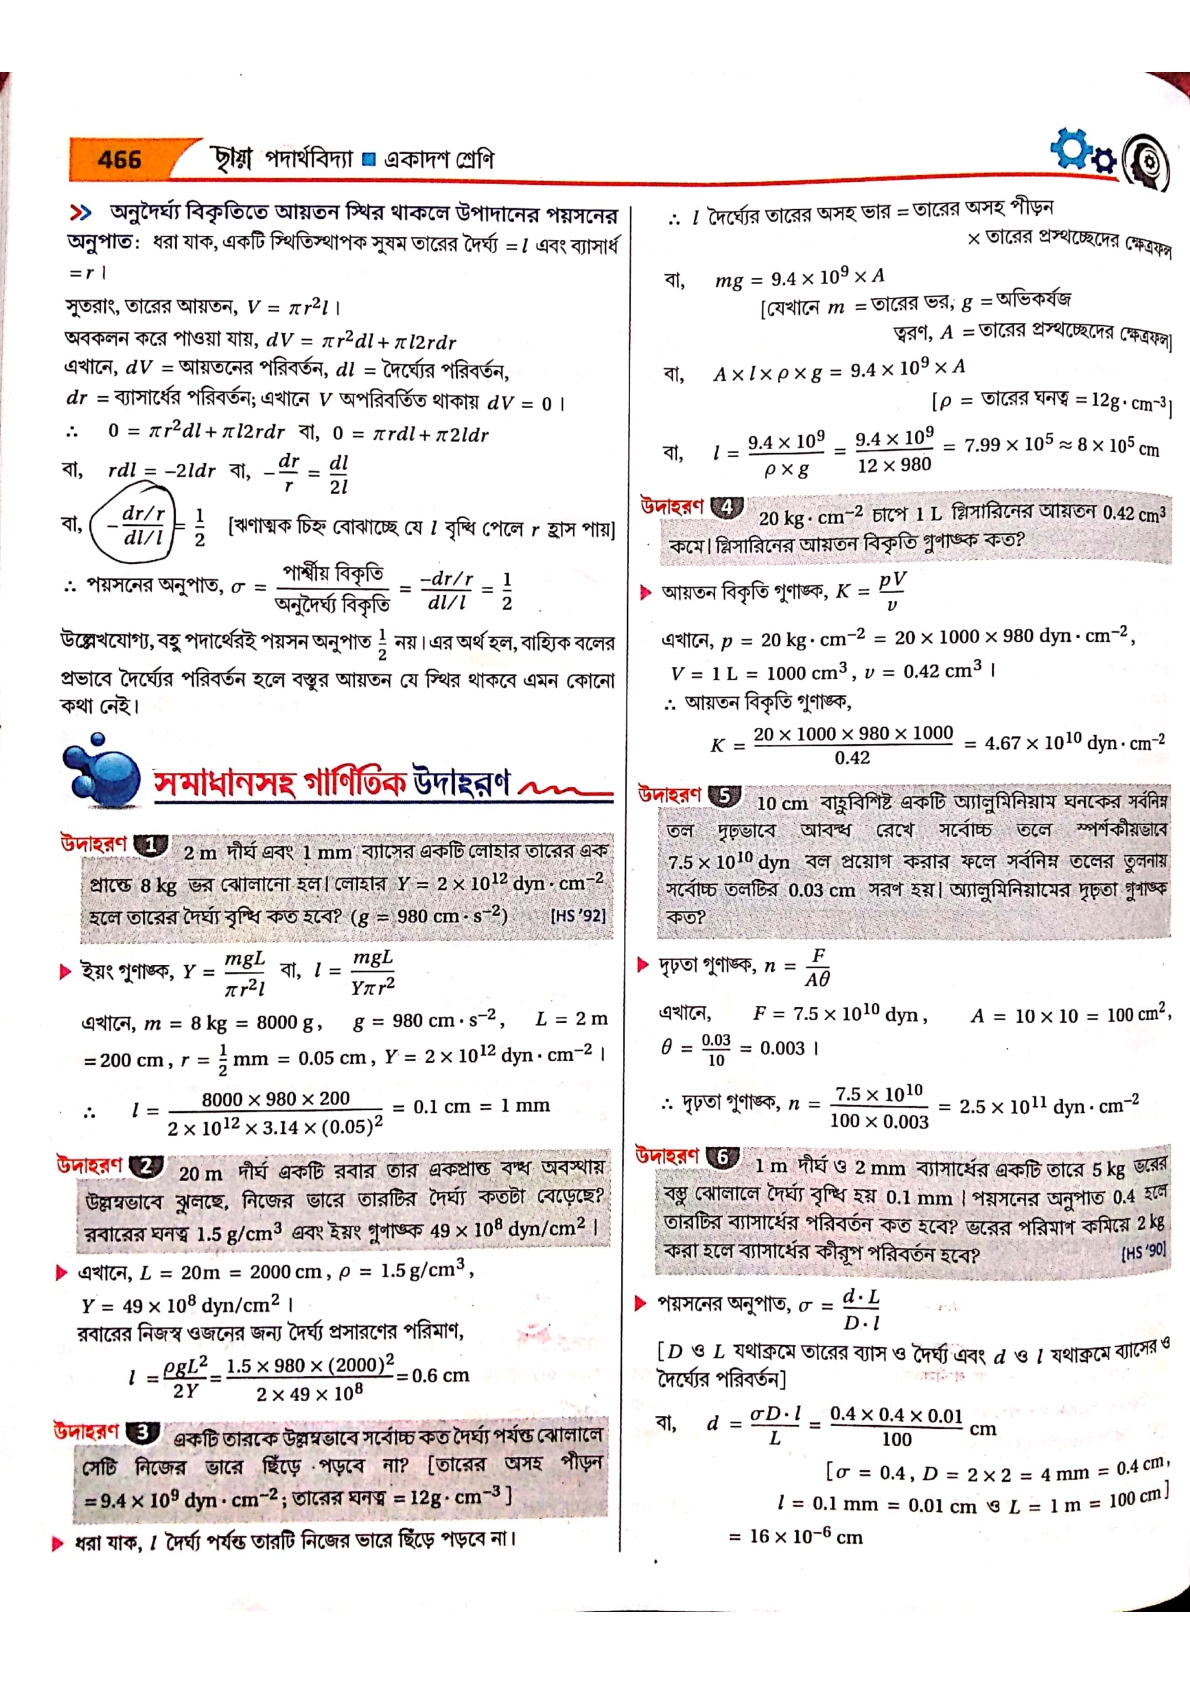 466 ছায়া পদার্থবিদ্যা ■ একাদশ শ্রেণি
>> অনুদৈর্ঘ্য বিকৃতিতে আয়তন স্থির থাকলে উপাদানের পয়সনের
অনুপাত: ধরা যাক, একটি স্থিতিস্থাপক সুষম তারের দৈর্ঘ্য = l এবং ব্যাসার্ধ
= r ।
সুতরাং, তারের আয়তন, V = πr²l ।
অবকলন করে পাওয়া যায়, dV = πr²dl + πl2rdr
এখানে, dV = আয়তনের পরিবর্তন, dl = দৈর্ঘ্যের পরিবর্তন,
dr = ব্যাসার্ধের পরিবর্তন; এখানে V অপরিবর্তিত থাকায় dV = 0 ।
∴ 0 = πr²dl + πl2rdr বা, 0 = πrdl + π2ldr
বা, rdl = –2ldr বা, –dr/r = dl/2l
বা, –(dr/r)/(dl/l) = 1/2 [ঋণাত্মক চিহ্ন বোঝাচ্ছে যে l বৃদ্ধি পেলে r হ্রাস পায়]
∴ পয়সনের অনুপাত, σ = পার্শ্বীয় বিকৃতি/অনুদৈর্ঘ্য বিকৃতি = (–dr/r)/(dl/l) = 1/2
উল্লেখযোগ্য, বহু পদার্থেরই পয়সন অনুপাত 1/2 নয়। এর অর্থ হল, বাহ্যিক বলের
প্রভাবে দৈর্ঘ্যের পরিবর্তন হলে বস্তুর আয়তন যে স্থির থাকবে এমন কোনো
কথা নেই।
সমাধানসহ গাণিতিক উদাহরণ
উদাহরণ 1 2 m দীর্ঘ এবং 1 mm ব্যাসের একটি লোহার তারের এক
প্রান্তে 8 kg ভর ঝোলানো হল। লোহার Y = 2 × 10¹² dyn · cm⁻²
হলে তারের দৈর্ঘ্য বৃদ্ধি কত হবে? (g = 980 cm · s⁻²) [HS '92]
▶ ইয়ং গুণাঙ্ক, Y = mgL/πr²l বা, l = mgL/Yπr²
এখানে, m = 8 kg = 8000 g, g = 980 cm · s⁻², L = 2 m
= 200 cm, r = 1/2 mm = 0.05 cm, Y = 2 × 10¹² dyn · cm⁻² ।
∴ l = (8000 × 980 × 200)/(2 × 10¹² × 3.14 × (0.05)²) = 0.1 cm = 1 mm
উদাহরণ 2 20 m দীর্ঘ একটি রবার তার একপ্রান্ত বদ্ধ অবস্থায়
উল্লম্বভাবে ঝুলছে, নিজের ভারে তারটির দৈর্ঘ্য কতটা বেড়েছে?
রবারের ঘনত্ব 1.5 g/cm³ এবং ইয়ং গুণাঙ্ক 49 × 10⁸ dyn/cm² ।
▶ এখানে, L = 20m = 2000 cm, ρ = 1.5 g/cm³,
Y = 49 × 10⁸ dyn/cm² ।
রবারের নিজস্ব ওজনের জন্য দৈর্ঘ্য প্রসারণের পরিমাণ,
l = ρgL²/2Y = (1.5 × 980 × (2000)²)/(2 × 49 × 10⁸) = 0.6 cm
উদাহরণ 3 একটি তারকে উল্লম্বভাবে সর্বোচ্চ কত দৈর্ঘ্য পর্যন্ত ঝোলালে
সেটি নিজের ভারে ছিঁড়ে পড়বে না? [তারের অসহ পীড়ন
= 9.4 × 10⁹ dyn · cm⁻²; তারের ঘনত্ব = 12g · cm⁻³]
▶ ধরা যাক, l দৈর্ঘ্য পর্যন্ত তারটি নিজের ভারে ছিঁড়ে পড়বে না।
∴ l দৈর্ঘ্যের তারের অসহ ভার = তারের অসহ পীড়ন
× তারের প্রস্থচ্ছেদের ক্ষেত্রফল
বা, mg = 9.4 × 10⁹ × A
[যেখানে m = তারের ভর, g = অভিকর্ষজ
ত্বরণ, A = তারের প্রস্থচ্ছেদের ক্ষেত্রফল]
বা, A × l × ρ × g = 9.4 × 10⁹ × A
[ρ = তারের ঘনত্ব = 12g · cm⁻³]
বা, l = (9.4 × 10⁹)/(ρ × g) = (9.4 × 10⁹)/(12 × 980) = 7.99 × 10⁵ ≈ 8 × 10⁵ cm
উদাহরণ 4 20 kg · cm⁻² চাপে 1 L গ্লিসারিনের আয়তন 0.42 cm³
কমে। গ্লিসারিনের আয়তন বিকৃতি গুণাঙ্ক কত?
▶ আয়তন বিকৃতি গুণাঙ্ক, K = pV/v
এখানে, p = 20 kg · cm⁻² = 20 × 1000 × 980 dyn · cm⁻²,
V = 1 L = 1000 cm³, v = 0.42 cm³ ।
∴ আয়তন বিকৃতি গুণাঙ্ক,
K = (20 × 1000 × 980 × 1000)/0.42 = 4.67 × 10¹⁰ dyn · cm⁻²
উদাহরণ 5 10 cm বাহুবিশিষ্ট একটি অ্যালুমিনিয়াম ঘনকের সর্বনিম্ন
তল দৃঢ়ভাবে আবদ্ধ রেখে সর্বোচ্চ তলে স্পর্শকীয়ভাবে
7.5 × 10¹⁰ dyn বল প্রয়োগ করার ফলে সর্বনিম্ন তলের তুলনায়
সর্বোচ্চ তলটির 0.03 cm সরণ হয়। অ্যালুমিনিয়ামের দৃঢ়তা গুণাঙ্ক
কত?
▶ দৃঢ়তা গুণাঙ্ক, n = F/Aθ
এখানে, F = 7.5 × 10¹⁰ dyn, A = 10 × 10 = 100 cm²,
θ = 0.03/10 = 0.003 ।
∴ দৃঢ়তা গুণাঙ্ক, n = (7.5 × 10¹⁰)/(100 × 0.003) = 2.5 × 10¹¹ dyn · cm⁻²
উদাহরণ 6 1 m দীর্ঘ ও 2 mm ব্যাসার্ধের একটি তারে 5 kg ভরের
বস্তু ঝোলালে দৈর্ঘ্য বৃদ্ধি হয় 0.1 mm । পয়সনের অনুপাত 0.4 হলে
তারটির ব্যাসার্ধের পরিবর্তন কত হবে? ভরের পরিমাণ কমিয়ে 2 kg
করা হলে ব্যাসার্ধের কীরূপ পরিবর্তন হবে? [HS '90]
▶ পয়সনের অনুপাত, σ = (d · L)/(D · l)
[D ও L যথাক্রমে তারের ব্যাস ও দৈর্ঘ্য এবং d ও l যথাক্রমে ব্যাসের ও
দৈর্ঘ্যের পরিবর্তন]
বা, d = (σD · l)/L = (0.4 × 0.4 × 0.01)/100 cm
[σ = 0.4, D = 2 × 2 = 4 mm = 0.4 cm,
l = 0.1 mm = 0.01 cm ও L = 1 m = 100 cm]
= 16 × 10⁻⁶ cm